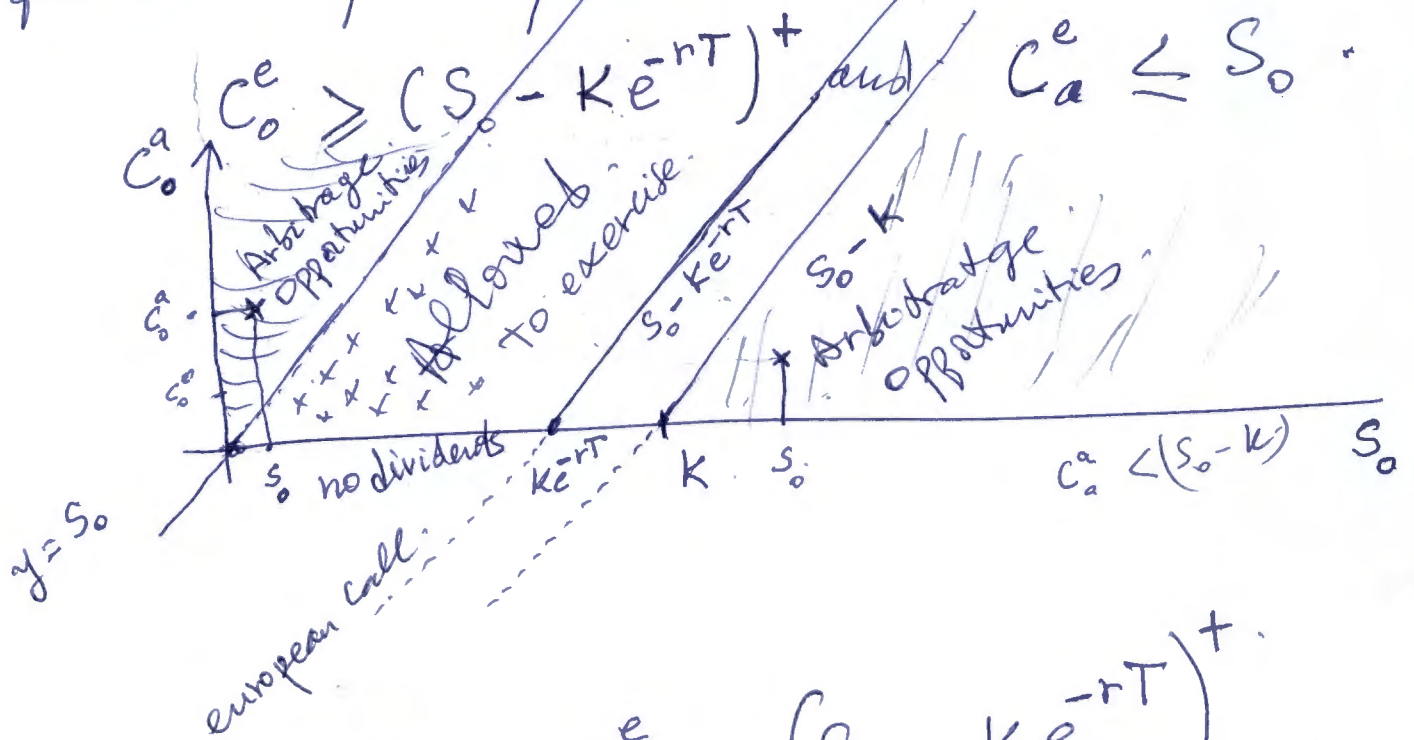 C₀ᵉ ≥ (S₀ - Ke^{-rT})⁺ and Cₐᵉ ≤ S₀.
C₀ᵃ
Arbitrage
opportunities
Allowed.
to exercise.
S₀-Ke^{-rT}
S₀-K
Arbitratge
opportunities.
C₀ᵃ
S₀ no dividents
Ke^{-rT}
K
S₀
Cₐᵃ <(S₀-K)
S₀
y=S₀
european call.
e
K e^{-rT})⁺.